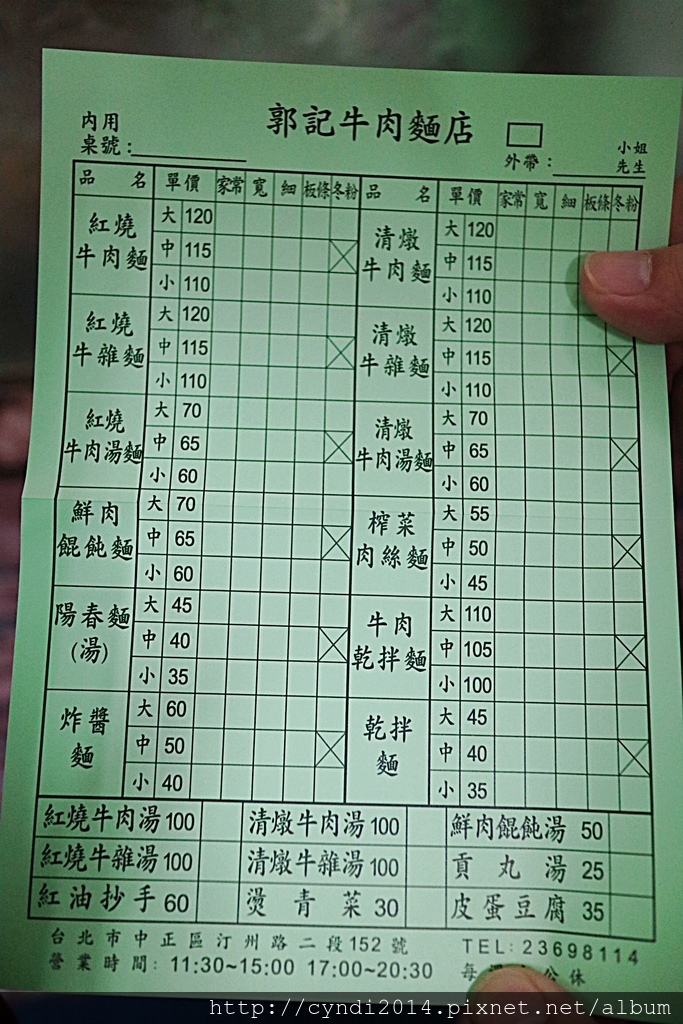 郭記牛肉麵店
內用
桌號：
外帶：
小姐
先生
品 名 單價 家常 寬 細 板條 冬粉 品 名 單價 家常 寬 細 板條 冬粉
紅燒
牛肉麵
大 120
中 115
小 110
清燉
牛肉麵
大 120
中 115
小 110
紅燒
牛雜麵
大 120
中 115
小 110
清燉
牛雜麵
大 120
中 115
小 110
紅燒
牛肉湯麵
大 70
中 65
小 60
清燉
牛肉湯麵
大 70
中 65
小 60
鮮肉
餛飩麵
大 70
中 65
小 60
榨菜
肉絲麵
大 55
中 50
小 45
陽春麵
(湯)
大 45
中 40
小 35
牛肉
乾拌麵
大 110
中 105
小 100
炸醬
麵
大 60
中 50
小 40
乾拌
麵
大 45
中 40
小 35
紅燒牛肉湯 100 清燉牛肉湯 100 鮮肉餛飩湯 50
紅燒牛雜湯 100 清燉牛雜湯 100 貢丸湯 25
紅油抄手 60 燙青菜 30 皮蛋豆腐 35
台北市中正區汀州路二段152號 TEL:23698114
營業時間: 11:30~15:00 17:00~20:30 每 公休
http://cyndi2014.pixnet.net/album